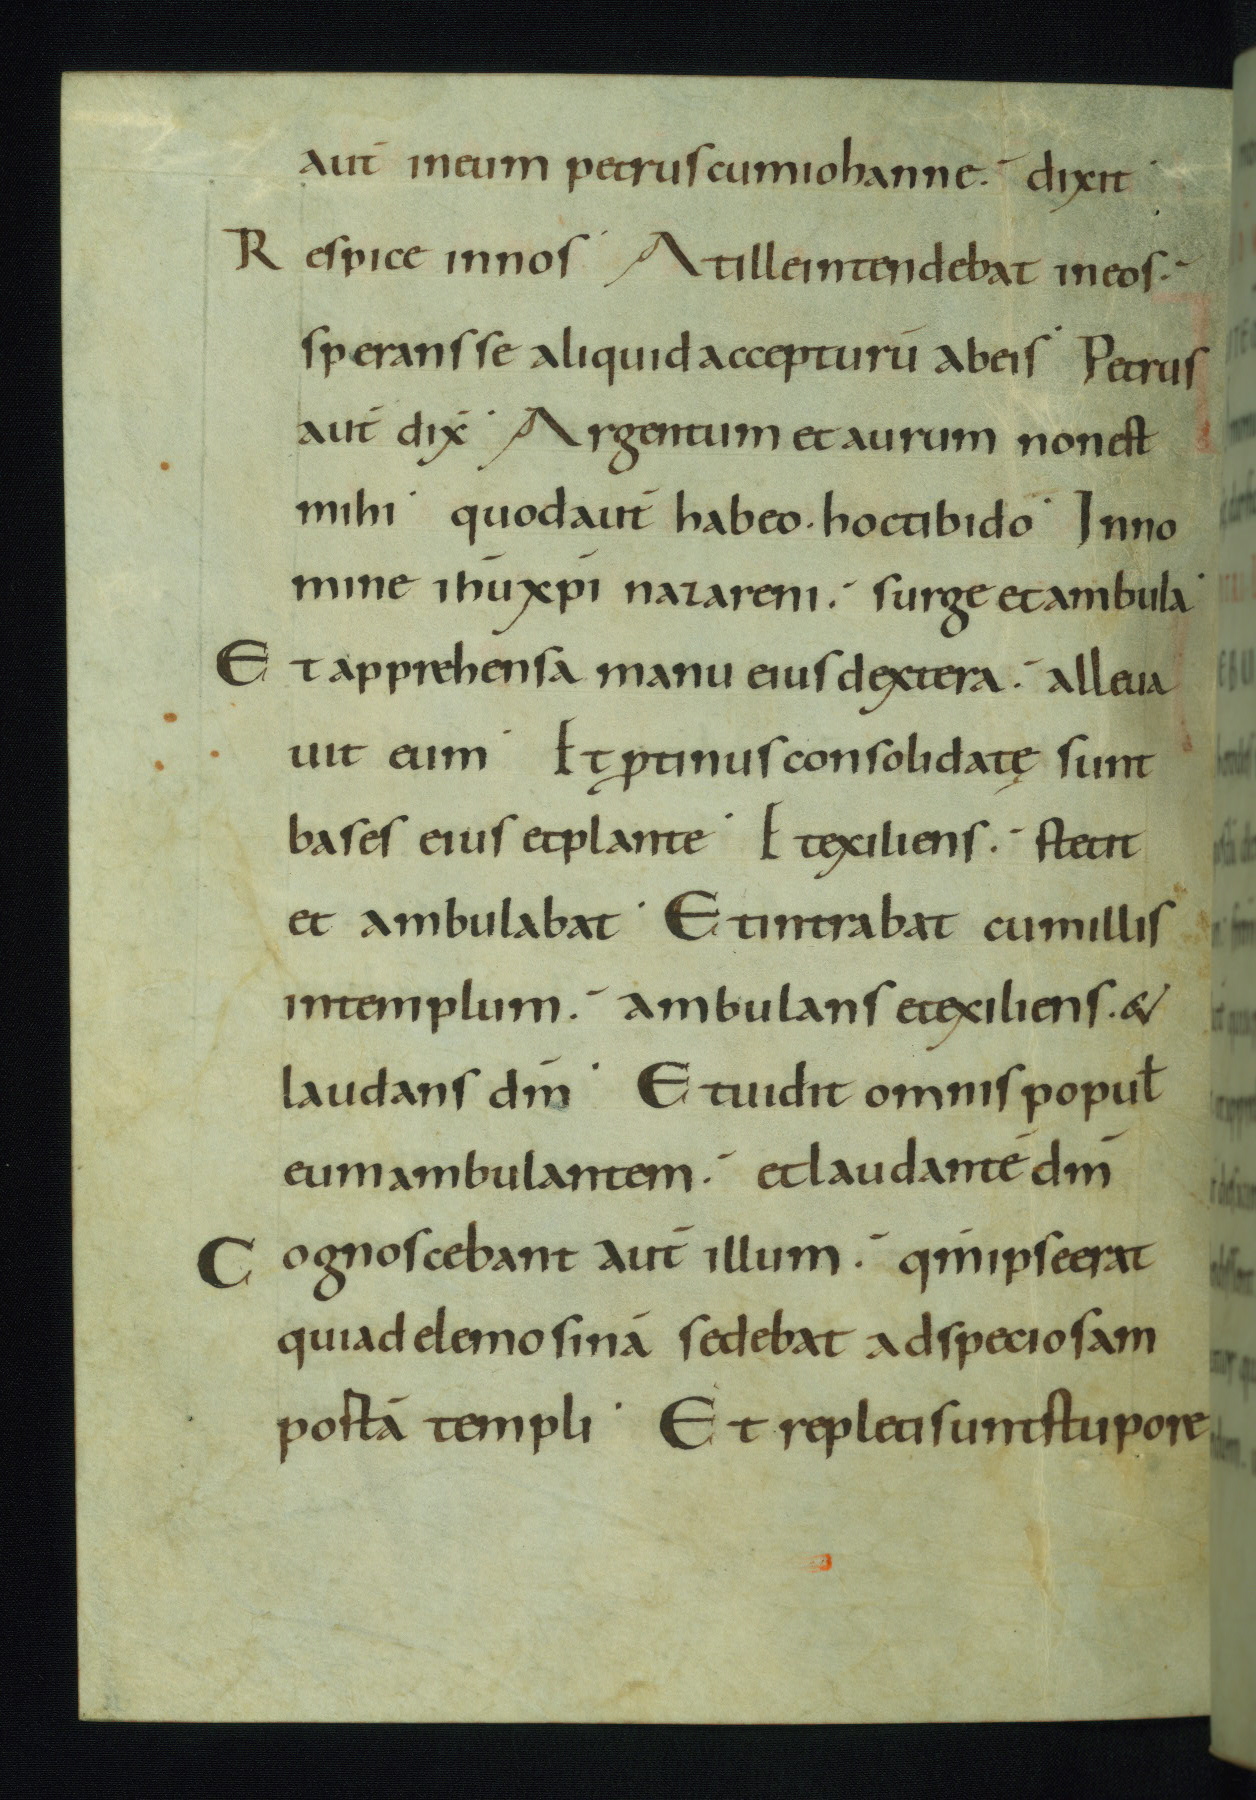 aut̄ ineum petruscumiohanne. dixit
Respice innos Atilleintendebat ineos.
speransse aliquidaccepturū abeis Petrus
aut̄ dix̄ Argentum etaurum nonest
mihi quodaut̄ habeo. hoctibido Inno
mine ihūxpī nazareni. surge etambula
Et apprehensa manu eiusdextera. alleua
uit eum Et ꝓtinusconsolidatę sunt
bases eius etplante Etexiliens. stetit
et ambulabat Etintrabat cumillis
intemplum. ambulans etexiliens. &
laudans dm̄ Etuidit omnispopuł
eumambulantem. etlaudantē dm̄
Cognoscebant aut̄ illum. qm̄ipseerat
quiadelemosinā sedebat adspeciosam
portā templi Et repletisuntstupore